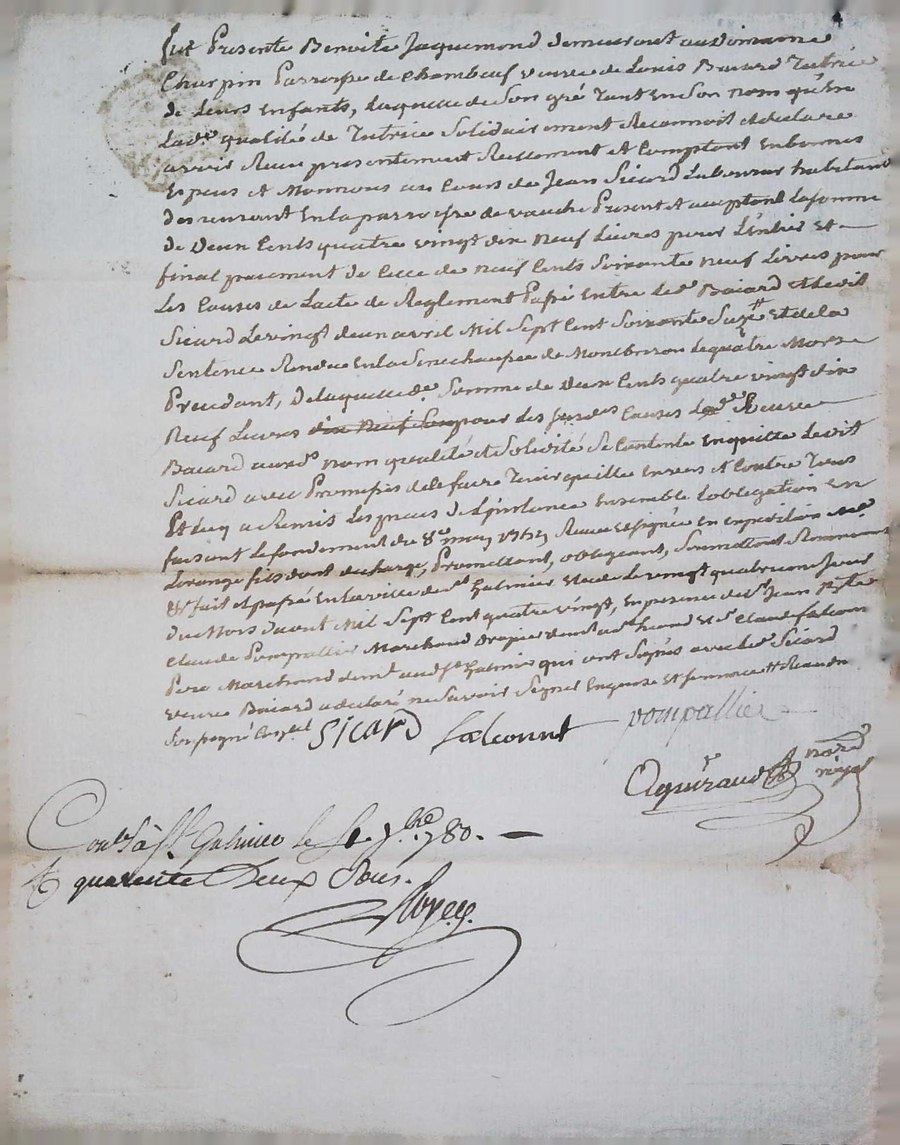 fut Presente Benoite Jaquemond demeurant au Domaine
Charpin Parroisse de Chambeuf veuve de Louis Baiard Tutrice
de Leurs Enfants, Laquelle de Son gré Tant En Son nom qu'En
Lad.e qualité de Tutrice Solidairement Reconnoit et declare
avoir Reçu presentement Reellement et Comptant En bonnes
Especes et Monnoies au Cours de Jean Sicard Laboureur habitant
demeurant En la parroisse de veauche Present et acceptant La somme
de Deux Cents quatre vingt dix Neuf Livres pour L'Entier et
final paiement de Celle de Neuf Cents Soixante neuf Livres pour
Les Causes de L'acte de Reglement Passé Entre Led. Baiard et Ledit
Sicard Le vingt deux avril Mil Sept Cent Soixante et de la
Sentence Rendue En la Senechaussée de Montbrison Le quatre Mars
Precedant, De laquelle d.e Somme de Deux Cents quatre vingt dix
Neuf Livres pour des Causes Lad.e veuve
Baiard aux d. nom qualité et Solidité Se Contente En quitte Ledit
Sicard avec Promesse de le faire Tenir quitte Envers et Contre Tous
Et luy a Remis Les pieces de L'instance Ensemble L'obligation En
faisant Le fondement du 8e may Reçue et signée En Expedition M.e
Lorange fils dont decharge, Promettant, obligeant, Soumettant Renonçant
fait et passé En la ville de S.t Galmier Etude Le vingt quatrieme Jour
du Mois d'aout Mil Sept Cent quatre vingt, En presence de S.r Jean
Claude Pompallier Marchand Drapier et S.r Claude falconnt
Pere Marchand dem.t aud. S.t Galmier qui ont Signés avec Led. Sicard
veuve Baiard a declaré ne Savoir Signer Enquise et Sommée
Sicard falconnt pompallier
Ageraud no.re royal
Con.lé à S.t Galmier le 7.bre 1780.
quarente Deux Sous.
Royer.